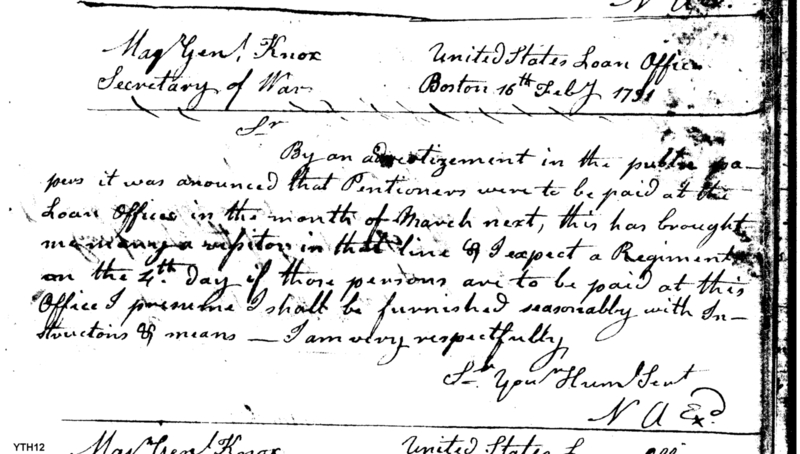 N A
Majr Genl Knox United States Loan Office
Secretary of War Boston 16th Feby 1791
Sr
By an advertizement in the public pa-
pers it was anounced that Pentioners were to be paid at the
Loan Office in the month of March next, this has brought
me many a in that line & I expect a Regiment
on the 4th. day if those persons are to be paid at this
Office I presume I shall be furnished seasonably with In-
structions & means — I am very respectfully
Sr. Your Huml Servt
N A
YTH12
Majr Genl Knox United States